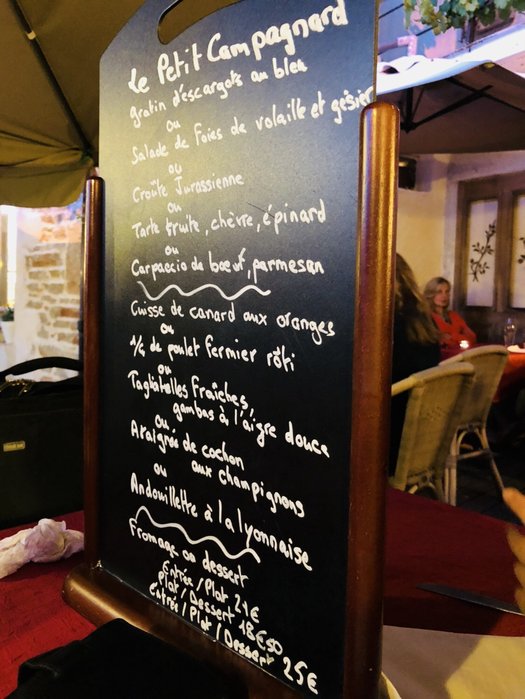 Le Petit Campagnard
gratin d'escargots au bleu
ou
Salade de Foies de volaille et gésier
ou
Croûte Jurassienne
ou
Tarte truite, chèvre, épinard
ou
Carpaccio de boeuf, parmesan
Cuisse de canard aux oranges
ou
1/4 de poulet fermier rôti
ou
Tagliatelles Fraîches,
gambas à l'aigre douce
ou
Araignée de cochon
aux champignons
ou
Andouillette à la lyonnaise
Fromage ou dessert
Entrée/Plat 21€
plat/Dessert 18€50
Entrée/Plat/Dessert 25€